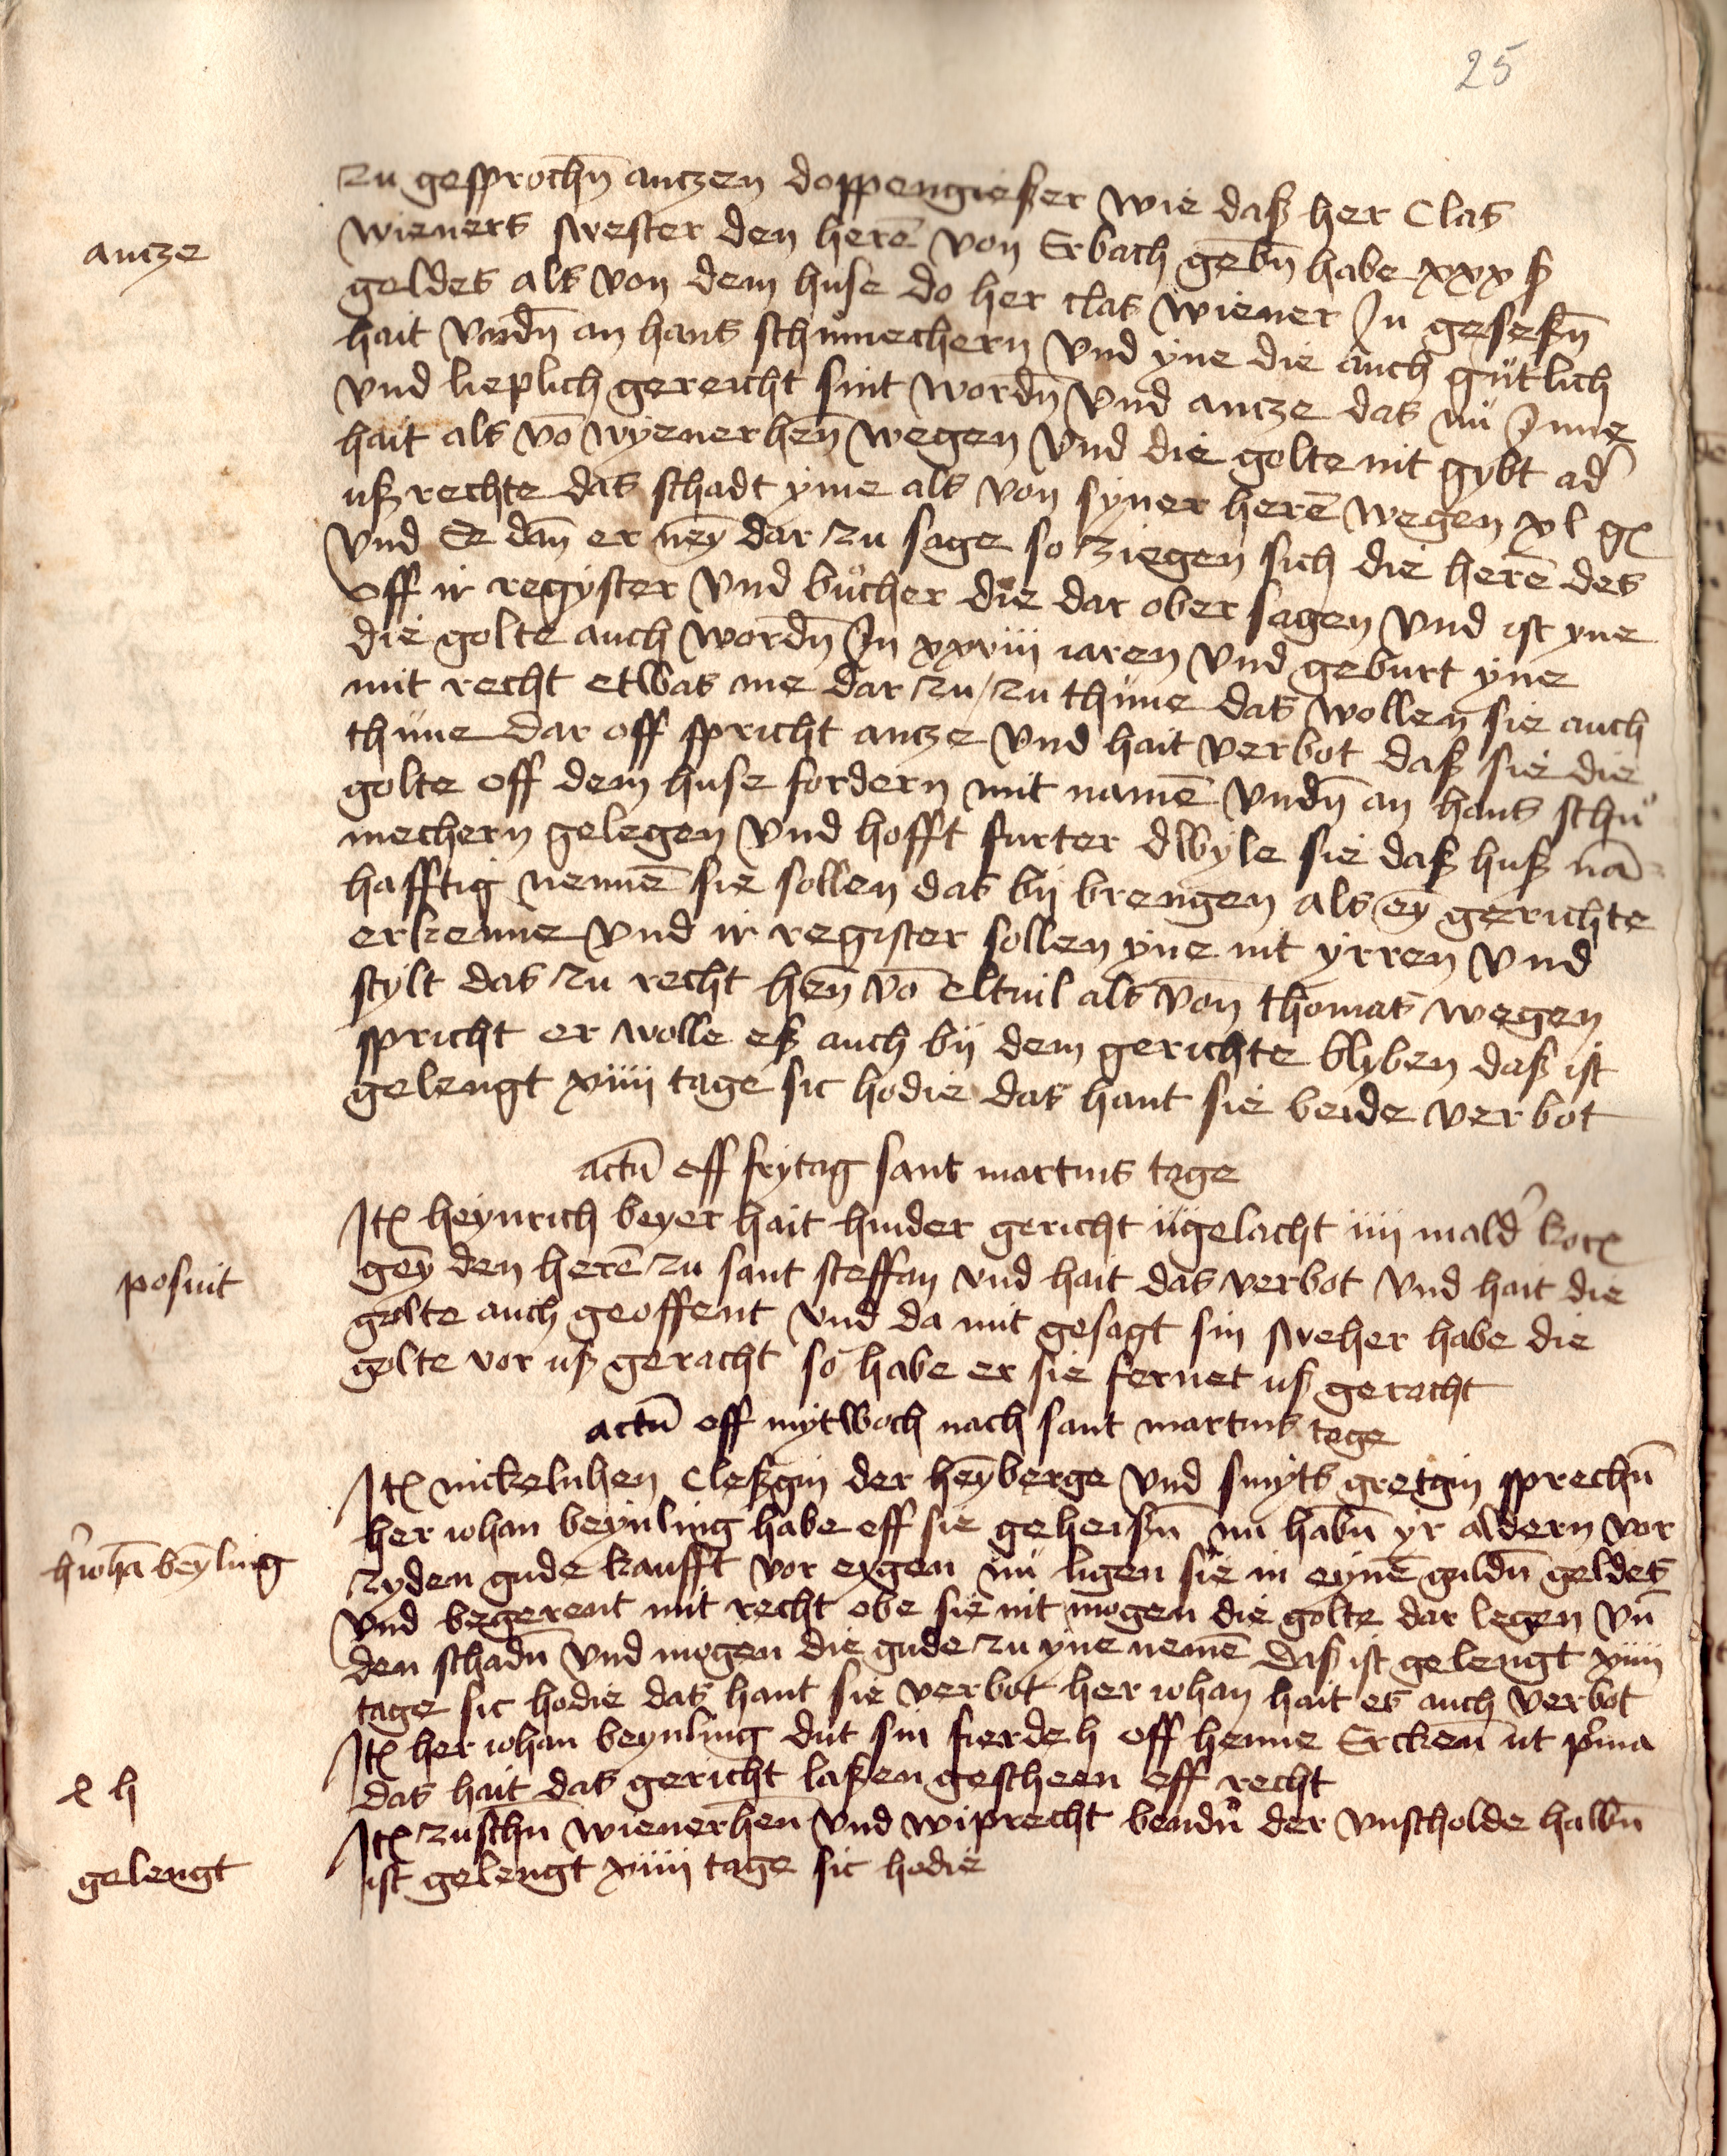 25
zu gesprochn̄ anczen doppengießer wie daß her Clas
antze
wieners swester den herē von Erbach gebn̄ habe xxx ß
geldes als von dem huse do her clas wiener Jn geseßn̄
hait vndn̄ an hans schůmechern vnd yne die auch gütlich
vnd lieplich gereicht sint wordn̄ vnd ancze das nů Jnne
hait als vō wyenerhen̄ wegen vnd die golte nit gybt ad'
ußrechte das schadt yme als von syner herē wegen xl g
vnd Ee dan̄ er ney dar zu sage so ziegen sich die herē des
vff ir regyster vnd bůcher die dar ober sagen vnd ist yne
die golte auch wordn̄ Jn xxviii iaren vnd geburt yne
mit recht etwas me dar zu / zu thůne das wollen sie auch
thůne dar off spricht ancze vnd hait verbot daß sie die
golte off dem huse fordern mit namē vndn̄ an hans schů
mechern gelegen vnd hofft furter dwyle sie daß huß nā
hafftig nennē sie sollen das bij brengen als eȳ gerichte
erkenne vnd ir register sollen yne nit yrren vnd
stylt das zu recht hen̄ vō eltuil als von thomas wegen
spricht er wolle eß auch bij dem gerichte blyben daß ist
gelengt xiiii tage sic hodie das hant sie beide verbot
actū off frytag sant martins tage
Jt heynrich beyer hait hinder gericht gelacht iiii mald' korn
posuit
gey̅ den herē zu sant steffan vnd hait das verbot vnd hait die
golte auch geoffent vnd da mit gesagt sin sweher habe die
golte vor uß geracht so habe er sie fernet uß geracht
actū off mytwoch nach sant martins tage
Jt nickeln hen Cleßgin der hey̅berge vnd smyts gretgin sprechn̄
her iohan beynling habe off sie geheisn̄ nu habn̄ yr aldern vor
h' iohā bey̅ling
zyden gude kaufft vor eygen nů ligen sie in eynē guldn̄ geldes
vnd begerent mit recht obe sie nit mogen die golte dar legen vn̄
den schadn̄ vnd mogen die gude zu yne nemē daß ist gelengt xiiii
tage sic hodie das hant sie verbot her iohan hait es auch verbot
Jt her iohan beynling dut sin fierde h off henne Ercken̄ ut p'ma
x h
das hait das gericht laßen gescheen off recht
Jt zuschn̄ wienerhen̄ vnd wiprecht bendn̄ der vnscholde halbn̄
gelengt
ist gelengt xiiii tage sic hodie